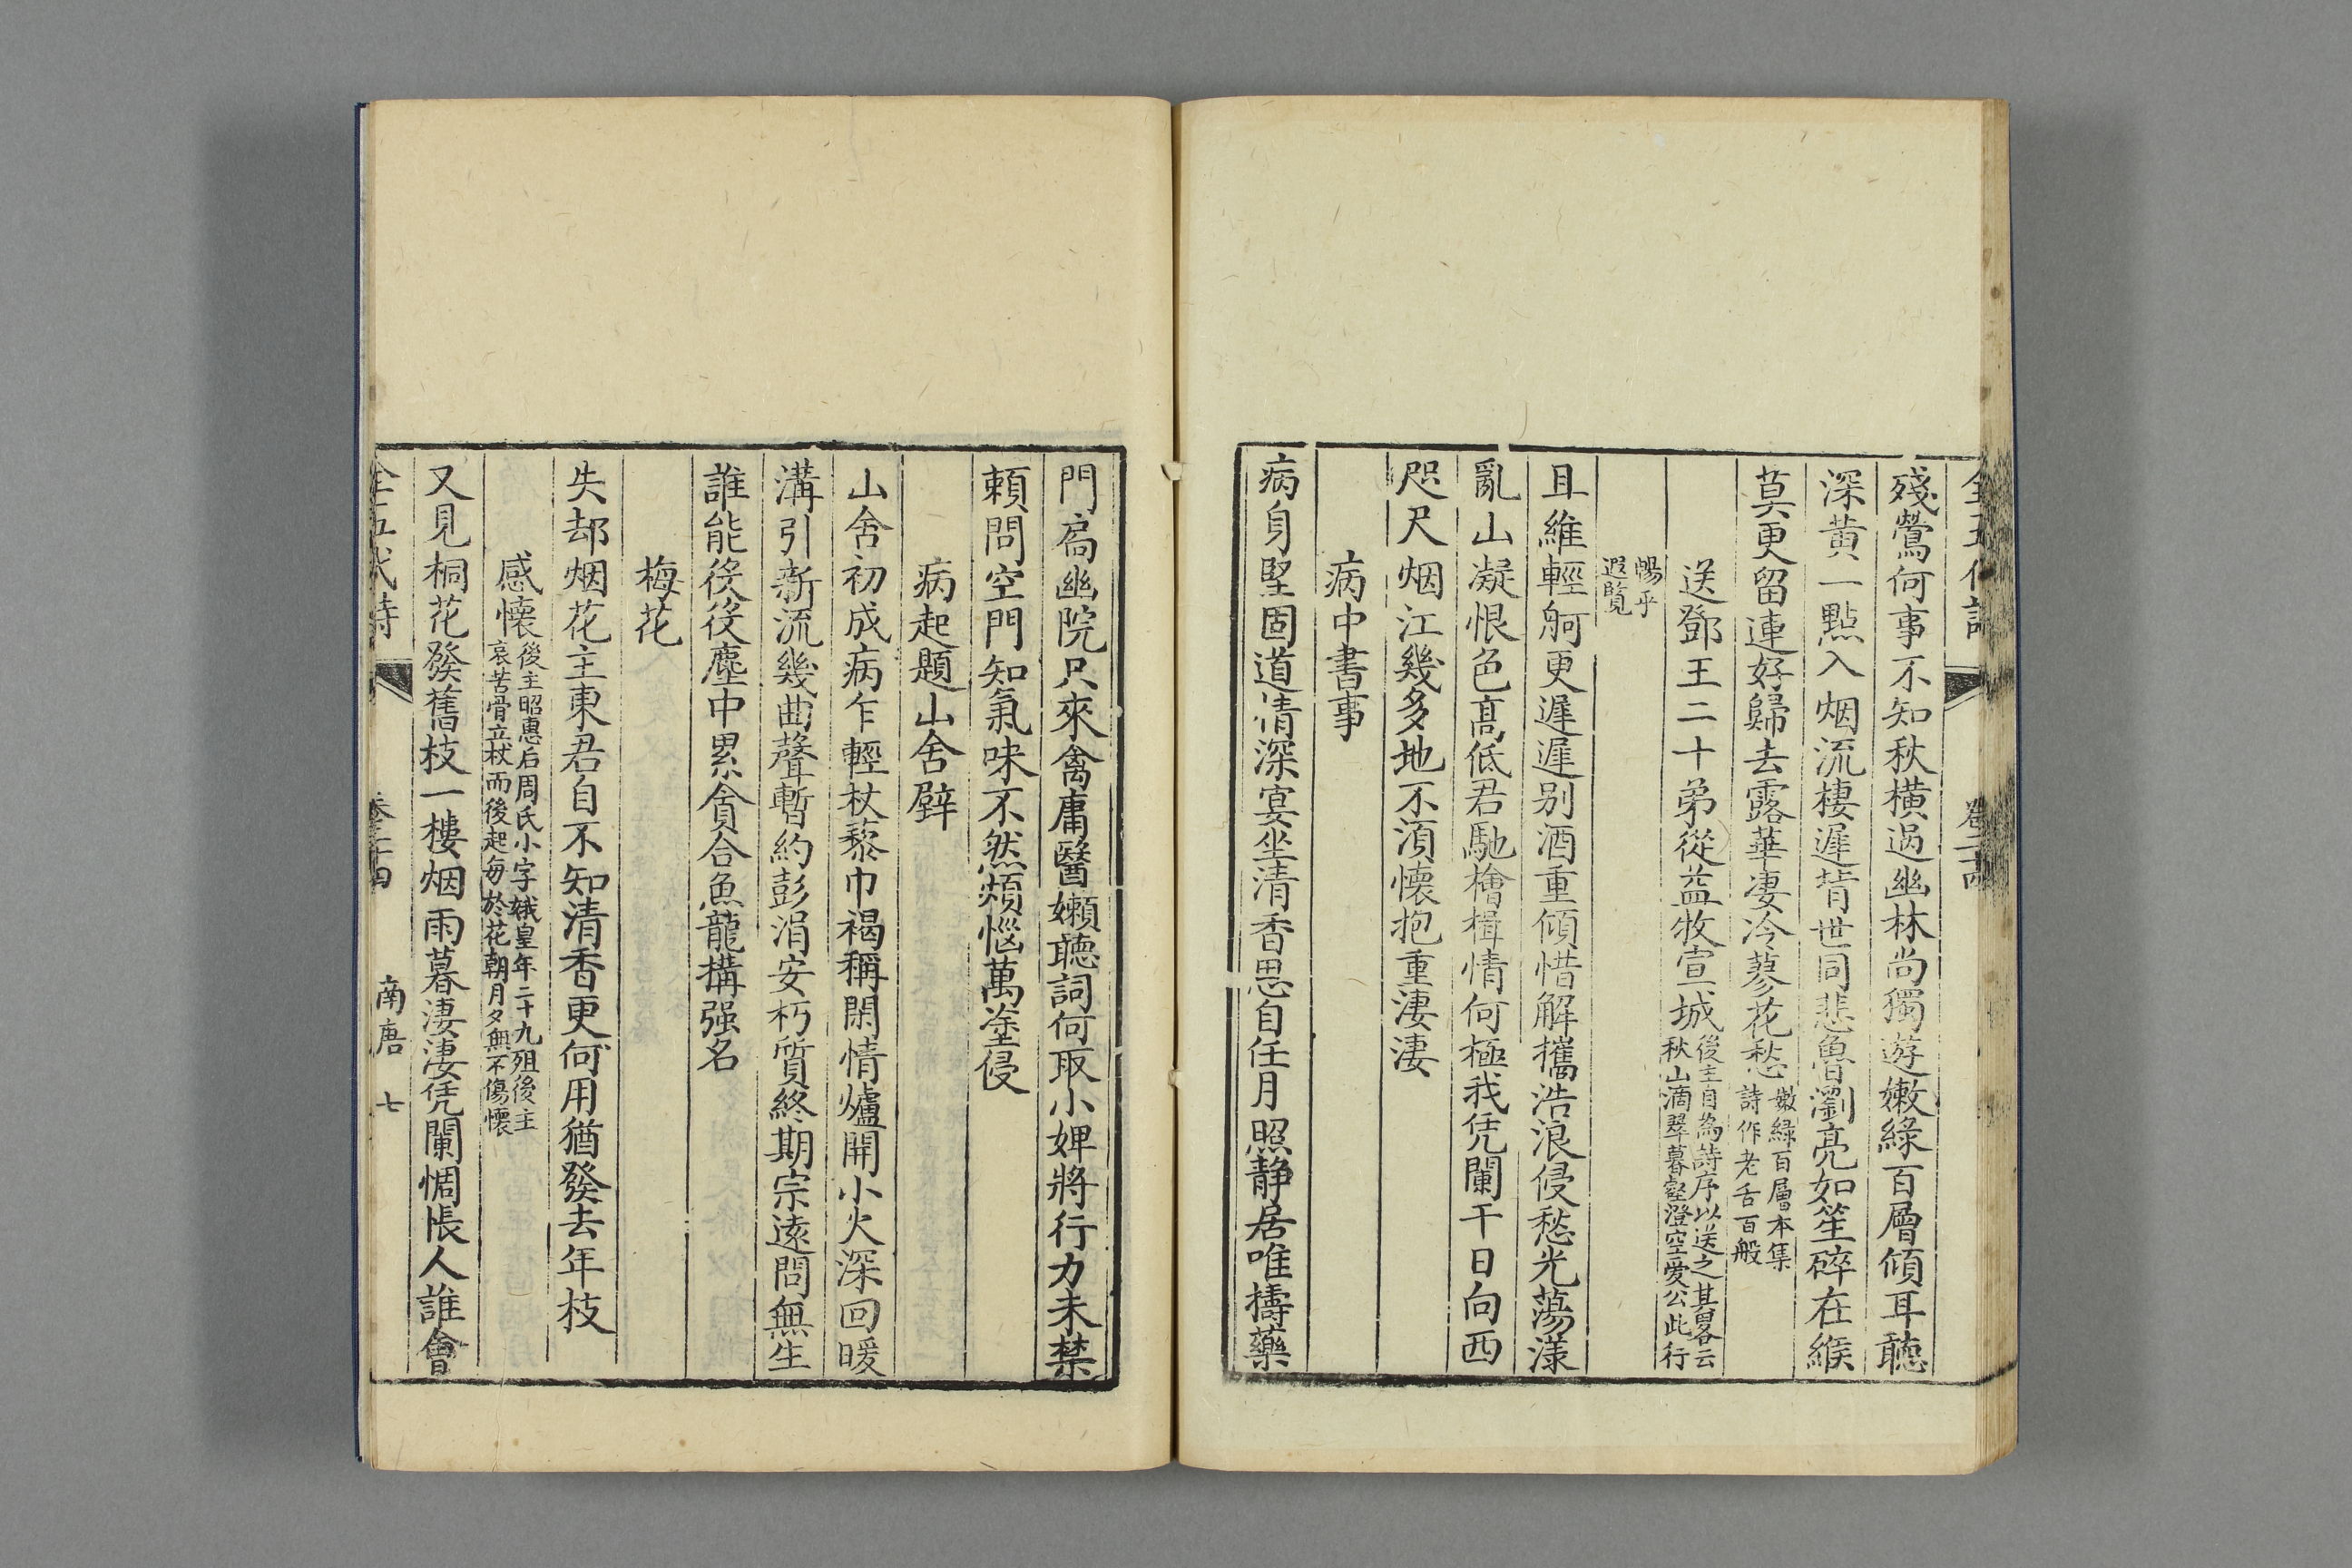 全五代詩 卷二十四
殘鶯何事不知秋橫過幽林尚獨遊嫩綠百層傾耳聽
深黃一點入烟流棲遲背世同悲魯瀏亮如笙碎在緱
莫更留連好歸去露華凄冷蓼花愁嫩綠百層本集詩作老舌百般
送鄧王二十弟從益牧宣城後主自為詩序以送之其畧云秋山滴翠暮壑澄空愛公此行
暢乎遐覽
且維輕舸更遲遲別酒重傾惜解攜浩浪侵愁光蕩漾
亂山凝恨色高低君馳檜楫情何極我凭闌干日向西
咫尺烟江幾多地不湏懷抱重淒淒
病中書事
病身堅固道情深宴坐清香思自任月照靜居唯擣藥
門扃幽院只來禽庸醫嬾聽詞何取小婢將行力未禁
賴問空門知氣味不然煩惱萬塗侵
病起題山舍壁
山舍初成病乍輕杖藜巾褐稱閑情爐開小火深回暖
溝引新流幾曲聲暫約彭涓安朽質終期宗遠問無生
誰能役役塵中累貪合魚龍構强名
梅花
失却烟花主東君自不知清香更何用猶發去年枝
感懷後主昭惠后周氏小字娥皇年二十九殂後主哀苦骨立杖而後起每於花朝月夕無不傷懷
又見桐花發舊枝一樓烟雨暮淒淒凭闌惆悵人誰會
全五代詩 卷二十四 南唐 七